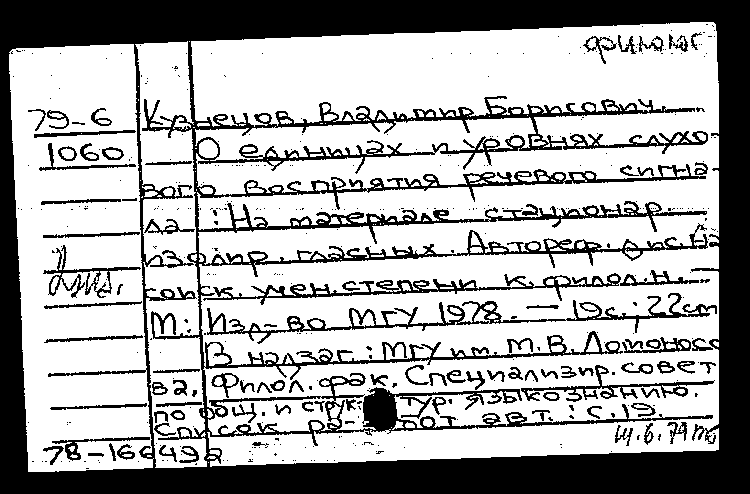 филолог
79-6 Кузнецов, Владимир Борисович.
1060 О единицах и уровнях слухо-
вого восприятия речевого сигна-
ла : На материале стационар.
изолир. гласных. Автореф. дис. на
соиск. учен. степени к. филол. н. —
М: Изд-во МГУ, 1978. — 19 с.; 22 см
В надзаг.: МГУ им. М.В. Ломоносо
ва, Филол. фак. Специализир. совет
по общ. и струк- тур. языкознанию.
Список ра- бот авт.: с. 19.
14.6.79
78-16649а